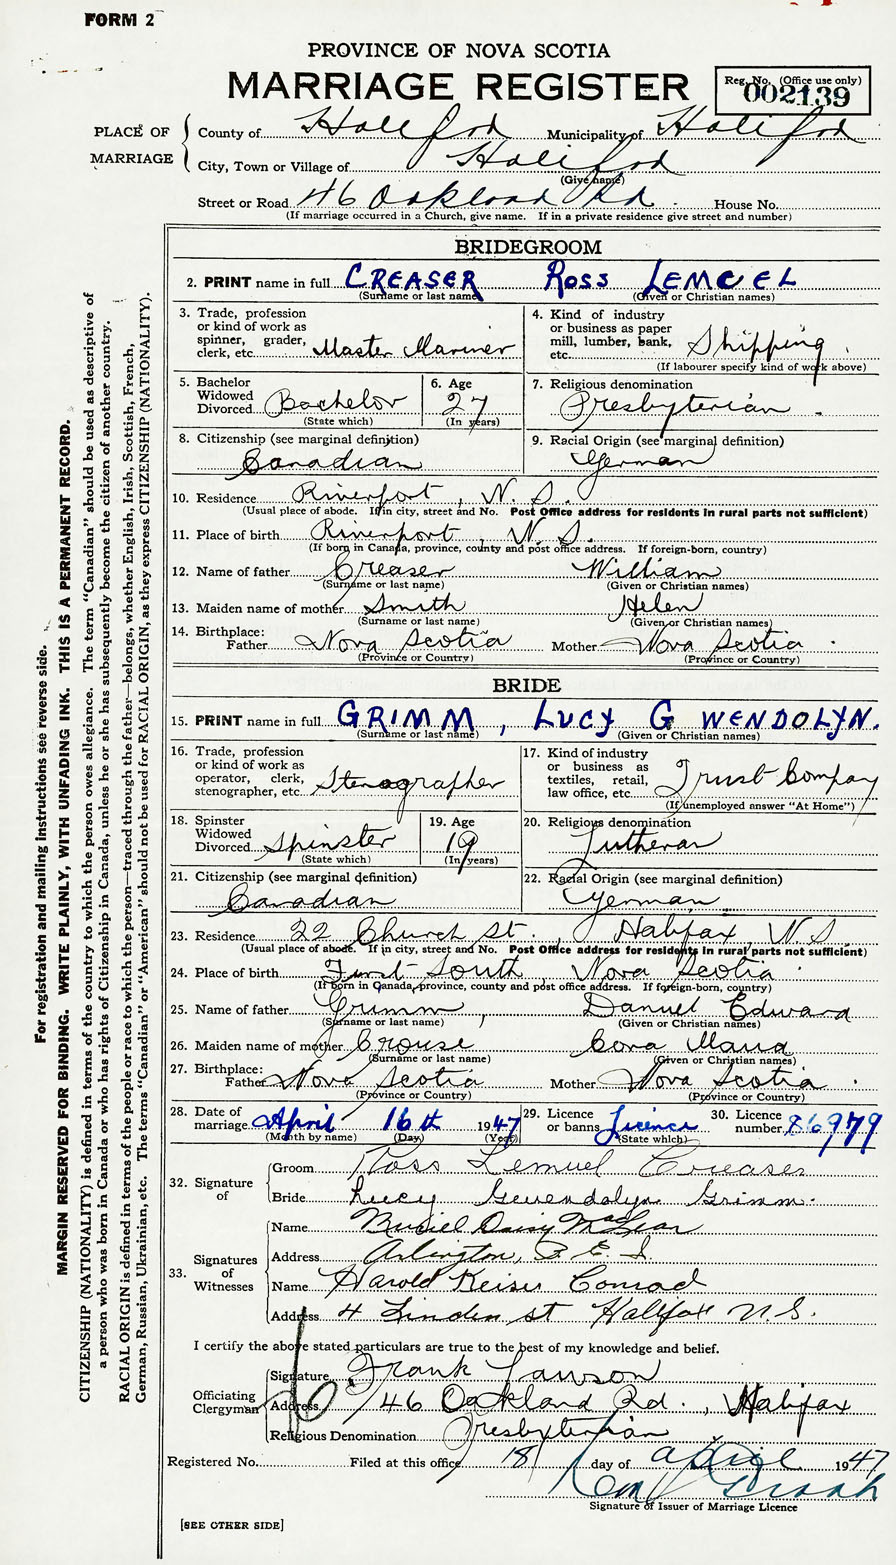 FORM 2
PROVINCE OF NOVA SCOTIA
MARRIAGE REGISTER
Reg. No. (Office use only)
002139
PLACE OF MARRIAGE
County of Halifax Municipality of Halifax
City, Town or Village of Halifax
(Give name)
Street or Road 46 Oakland Rd. House No.
(If marriage occurred in a Church, give name. If in a private residence give street and number)
BRIDEGROOM
2. PRINT name in full CREASER ROSS LEMUEL
(Surname or last name) (Given or Christian names)
3. Trade, profession or kind of work as spinner, grader, clerk, etc. Master Mariner
4. Kind of industry or business as paper mill, lumber, bank, etc. Shipping
(If labourer specify kind of work above)
5. Bachelor Widowed Divorced Bachelor
(State which)
6. Age 27
(In years)
7. Religious denomination
Presbyterian
8. Citizenship (see marginal definition)
Canadian
9. Racial Origin (see marginal definition)
German
10. Residence Riverport, N. S.
(Usual place of abode. If in city, street and No. Post Office address for residents in rural parts not sufficient)
11. Place of birth Riverport, N. S.
(If born in Canada, province, county and post office address. If foreign-born, country)
12. Name of father Creaser William
(Surname or last name) (Given or Christian names)
13. Maiden name of mother Smith Helen
(Surname or last name) (Given or Christian names)
14. Birthplace:
Father Nova Scotia Mother Nova Scotia
(Province or Country) (Province or Country)
BRIDE
15. PRINT name in full GRIMM, LUCY GWENDOLYN.
(Surname or last name) (Given or Christian names)
16. Trade, profession or kind of work as operator, clerk, stenographer, etc. Stenographer
17. Kind of industry or business as textiles, retail, law office, etc. Trust Company
(If unemployed answer "At Home")
18. Spinster Widowed Divorced Spinster
(State which)
19. Age 19
(In years)
20. Religious denomination
Lutheran
21. Citizenship (see marginal definition)
Canadian
22. Racial Origin (see marginal definition)
German
23. Residence 22 Church St., Halifax N S
(Usual place of abode. If in city, street and No. Post Office address for residents in rural parts not sufficient)
24. Place of birth First South, Nova Scotia
(If born in Canada, province, county and post office address. If foreign-born, country)
25. Name of father Grimm, Daniel Edward
(Surname or last name) (Given or Christian names)
26. Maiden name of mother Crouse Cora Maria
(Surname or last name) (Given or Christian names)
27. Birthplace:
Father Nova Scotia Mother Nova Scotia
(Province or Country) (Province or Country)
28. Date of marriage April 16th 1947
(Month by name) (Day) (Year)
29. Licence or banns Licence
(State which)
30. Licence number 86979
32. Signature of
Groom Ross Lemuel Creaser
Bride Lucy Gwendolyn Grimm.
33. Signatures of Witnesses
Name Daisy McLean
Address Arlington, P. E. I.
Name Harold Keiser Conrad
Address 4 Linden St Halifax N.S.
I certify the above stated particulars are true to the best of my knowledge and belief.
Officiating Clergyman
Signature Frank Lawson
Address 46 Oakland Rd., Halifax
Religious Denomination Presbyterian
Registered No. Filed at this office 18 day of April 1947
Signature of Issuer of Marriage Licence
[SEE OTHER SIDE]
For registration and mailing instructions see reverse side.
MARGIN RESERVED FOR BINDING. WRITE PLAINLY, WITH UNFADING INK. THIS IS A PERMANENT RECORD.
CITIZENSHIP (NATIONALITY) is defined in terms of the country to which the person owes allegiance. The term "Canadian" should be used as descriptive of
a person who was born in Canada or who has rights of Citizenship in Canada, unless he or she has subsequently become the citizen of another country.
RACIAL ORIGIN is defined in terms of the people or race to which the person—traced through the father—belongs, whether English, Irish, Scottish, French,
German, Russian, Ukrainian, etc. The terms "Canadian" or "American" should not be used for RACIAL ORIGIN, as they express CITIZENSHIP (NATIONALITY).